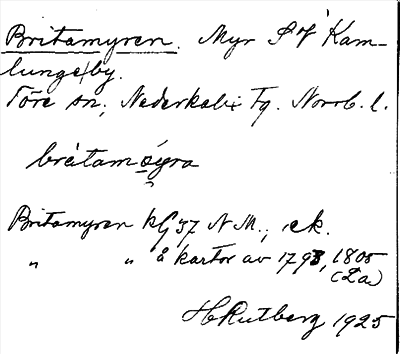 Britamyren. Myr S V Kam-
lunge by.
Töre sn, Nederkalix Tg. Norrb. l.
brètam øyra
Britamyren kG 37 N M., ek.
" " å kartor av 1793, 1805
(La)
H Rutberg 1925